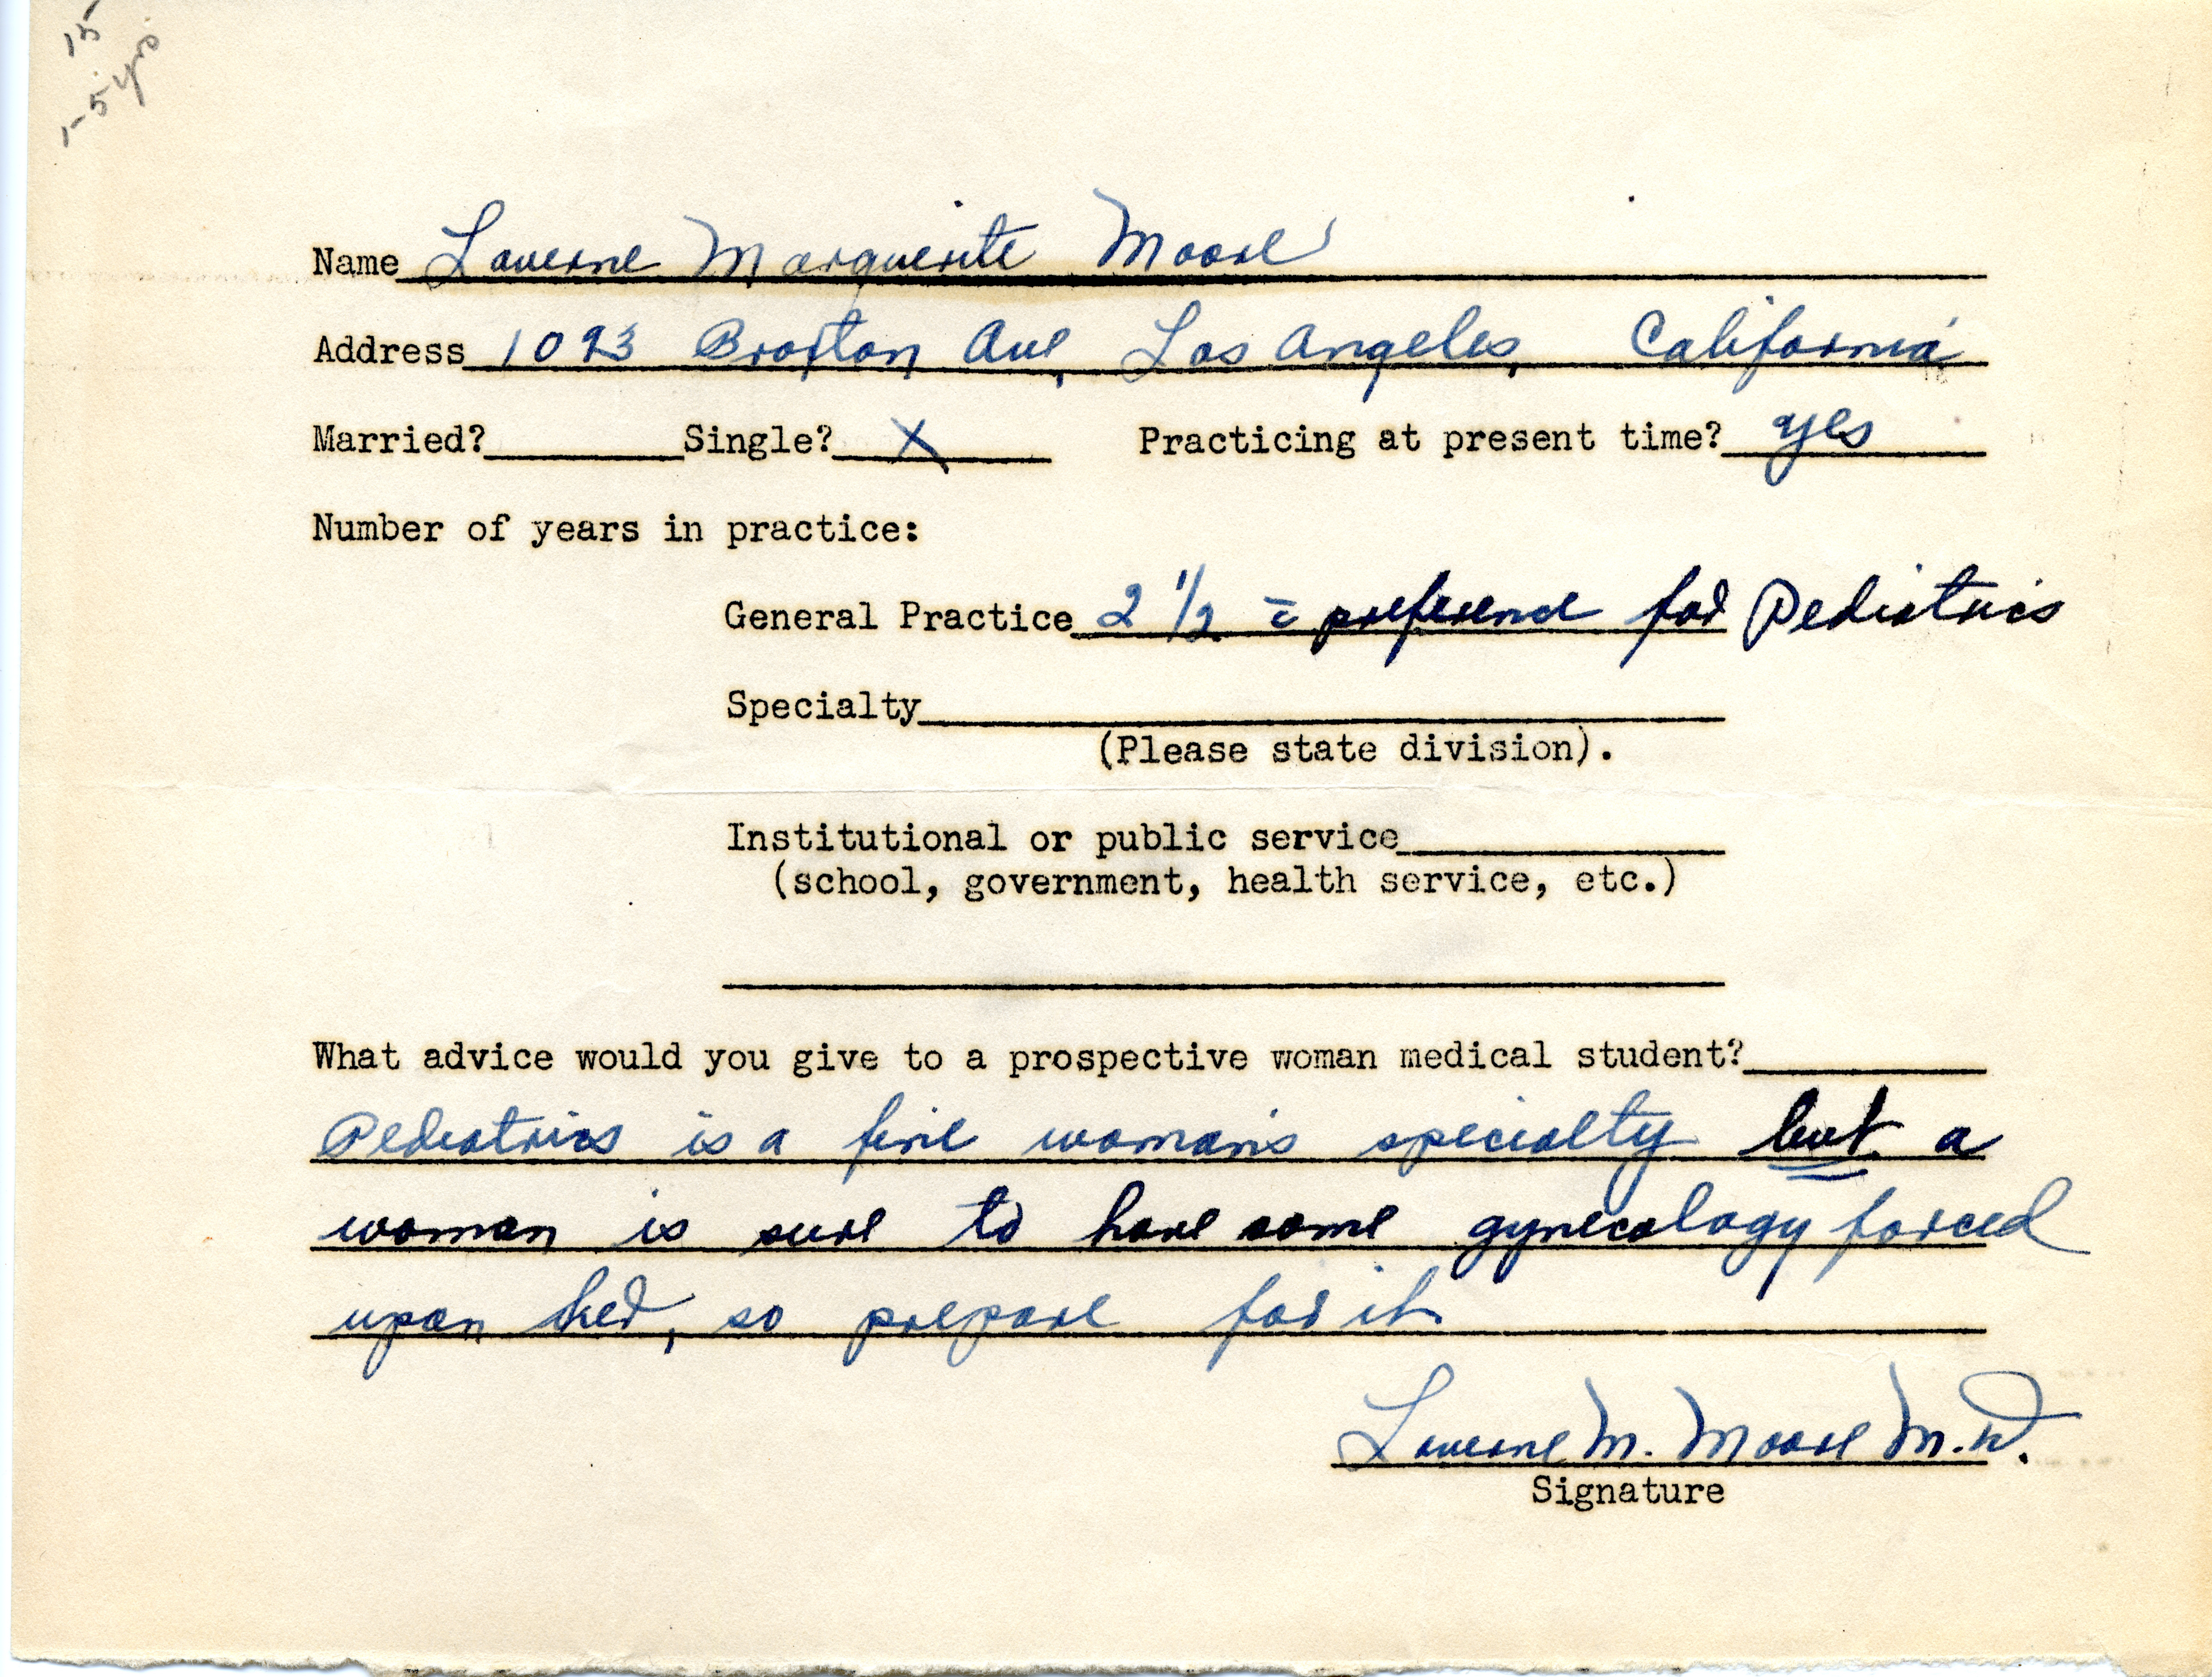 15
1-5 yrs
Name Laverne Marguerite Moore
Address 1093 Broxton Ave, Los Angeles, California
Married? Single? X Practicing at present time? yes
Number of years in practice:
General Practice 2 1/2 c̄ preference for Pediatrics
Specialty
(Please state division).
Institutional or public service
(school, government, health service, etc.)
What advice would you give to a prospective woman medical student?
Pediatrics is a fine woman's specialty but a
woman is sure to have some gynecology forced
upon her, so prepare for it
Laverne M. Moore M.D.
Signature